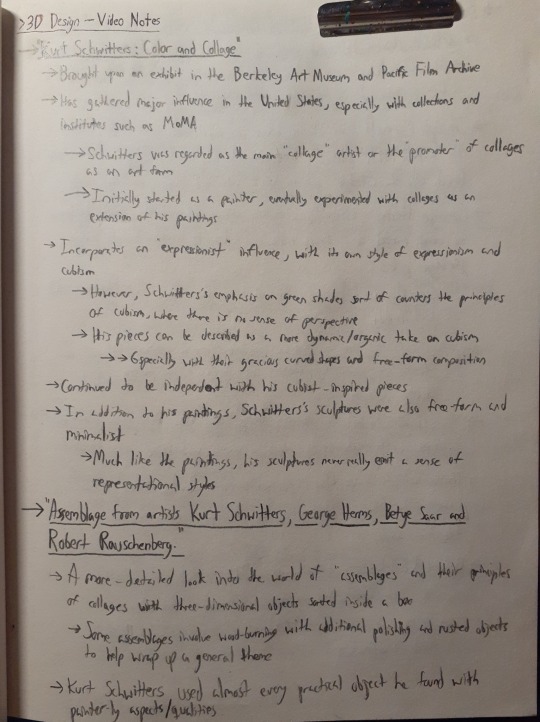 > 3D Design - Video Notes
→ "Kurt Schwitters: Color and Collage"
→ Brought upon an exhibit in the Berkeley Art Museum and Pacific Film Archive
→ Has gathered major influence in the United States, especially with collections and
institutes such as MoMA
→ Schwitters was regarded as the main "collage" artist or the "promoter" of collages
as an art form
→ Initially started as a painter, eventually experimented with collages as an
extension of his paintings
→ Incorporates an "expressionist" influence, with its own style of expressionism and
cubism
→ However, Schwitters's emphasis on green shades sort of counters the principles
of cubism, where there is no sense of perspective
→ His pieces can be described as a more dynamic/organic take on cubism
→→ Especially with their gracious curved shapes and free-form composition
→ Continued to be independent with his cubist-inspired pieces
→ In addition to his paintings, Schwitters's sculptures were also free-form and
minimalist
→ Much like the paintings, his sculptures never really emit a sense of
representational styles
→ "Assemblage from artists Kurt Schwitters, George Herms, Betye Saar and
Robert Rauschenberg."
→ A more-detailed look into the world of "assemblages" and their principles
of collages with three-dimensional objects sorted inside a box
→ Some assemblages involve wood-burning with additional polishing and rusted objects
to help wrap up a general theme
→ Kurt Schwitters used almost every practical object he found with
painter-ly aspects/qualities